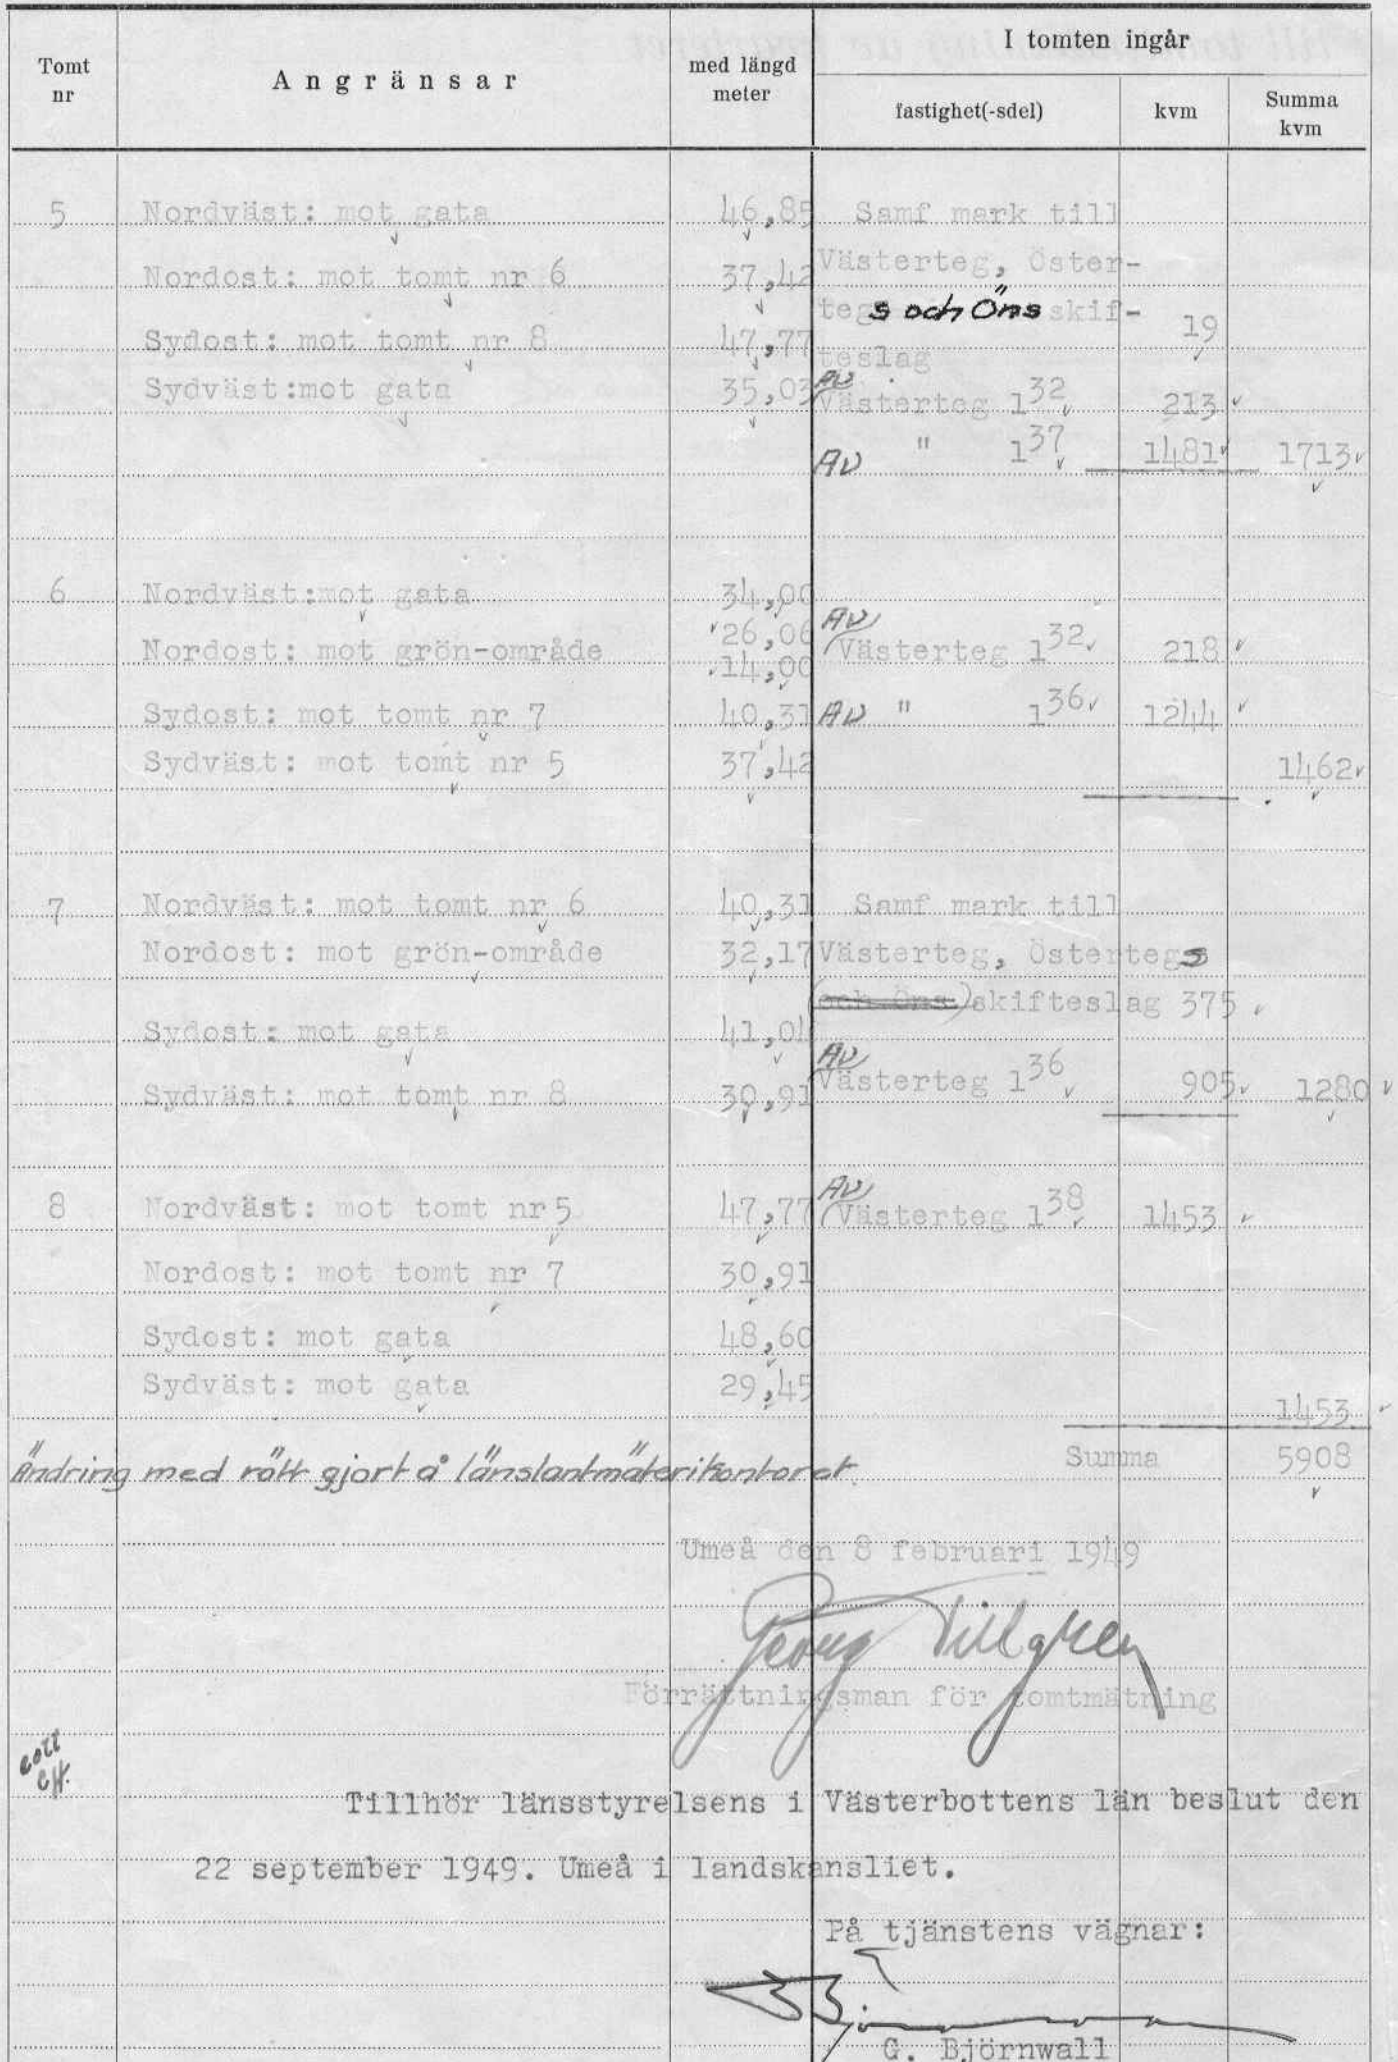 Tomt nr Angränsar med längd meter I tomten ingår
fastighet(-sdel) kvm Summa kvm
5 Nordväst: mot gata 46,85 Samf mark till
Nordost: mot tomt nr 6 37,42 Västerteg, Öster-
tegs och Öns skif- 19
Sydost: mot tomt nr 8 47,77 teslag
Sydväst:mot gata 35,03 Av Västerteg 1³² 213
Av " 1³⁷ 1481 1713
6 Nordväst:mot gata 34,00
Nordost: mot grön-område 26,06 Av Västerteg 1³² 218
14,00
Sydost: mot tomt nr 7 40,31 Av " 1³⁶ 1244
Sydväst: mot tomt nr 5 37,42 1462
7 Nordväst: mot tomt nr 6 40,31 Samf mark till
Nordost: mot grön-område 32,17 Västerteg, Östertegs
(och Öns) skifteslag 375
Sydost: mot gata 41,04
Sydväst: mot tomt nr 8 30,91 Av Västerteg 1³⁶ 905 1280
8 Nordväst: mot tomt nr 5 47,77 Av Västerteg 1³⁸ 1453
Nordost: mot tomt nr 7 30,91
Sydost: mot gata 48,60
Sydväst: mot gata 29,45
1453
Ändring med rött gjort å länslantmäterikontoret. Summa 5908
Umeå den 8 februari 1949
Georg Tillgren
Förrättningsman för tomtmätning
coll
CH.
Tillhör länsstyrelsens i Västerbottens län beslut den
22 september 1949. Umeå i landskansliet.
På tjänstens vägnar:
G. Björnwall